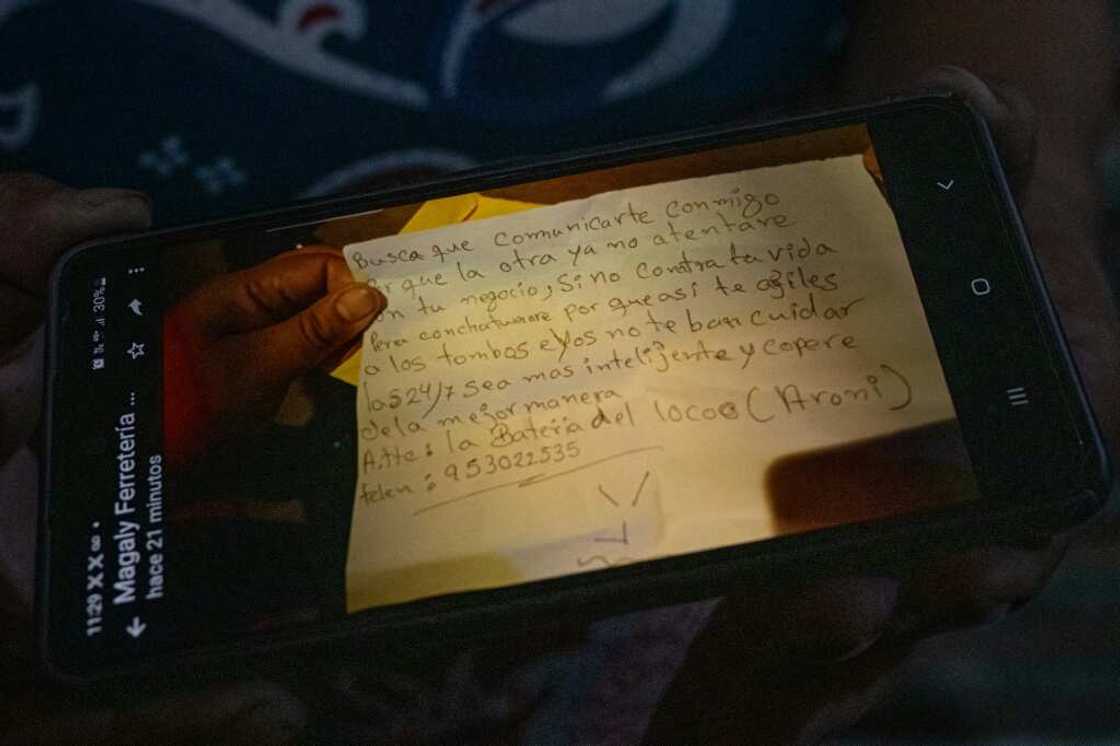 11:29
30%
Magaly Ferretería ...
hace 21 minutos
Busca que comunicarte conmigo
que la otra ya no atentare
tu negocio, Si no contra tu vida
conchatumare por que asi te agiles
a los tombos eyos no te ban cuidar
las 24/7 sea mas intelijente y copere
dela mejor manera
Atte: la Bateria del locoo (Aromi)
telen: 953022535